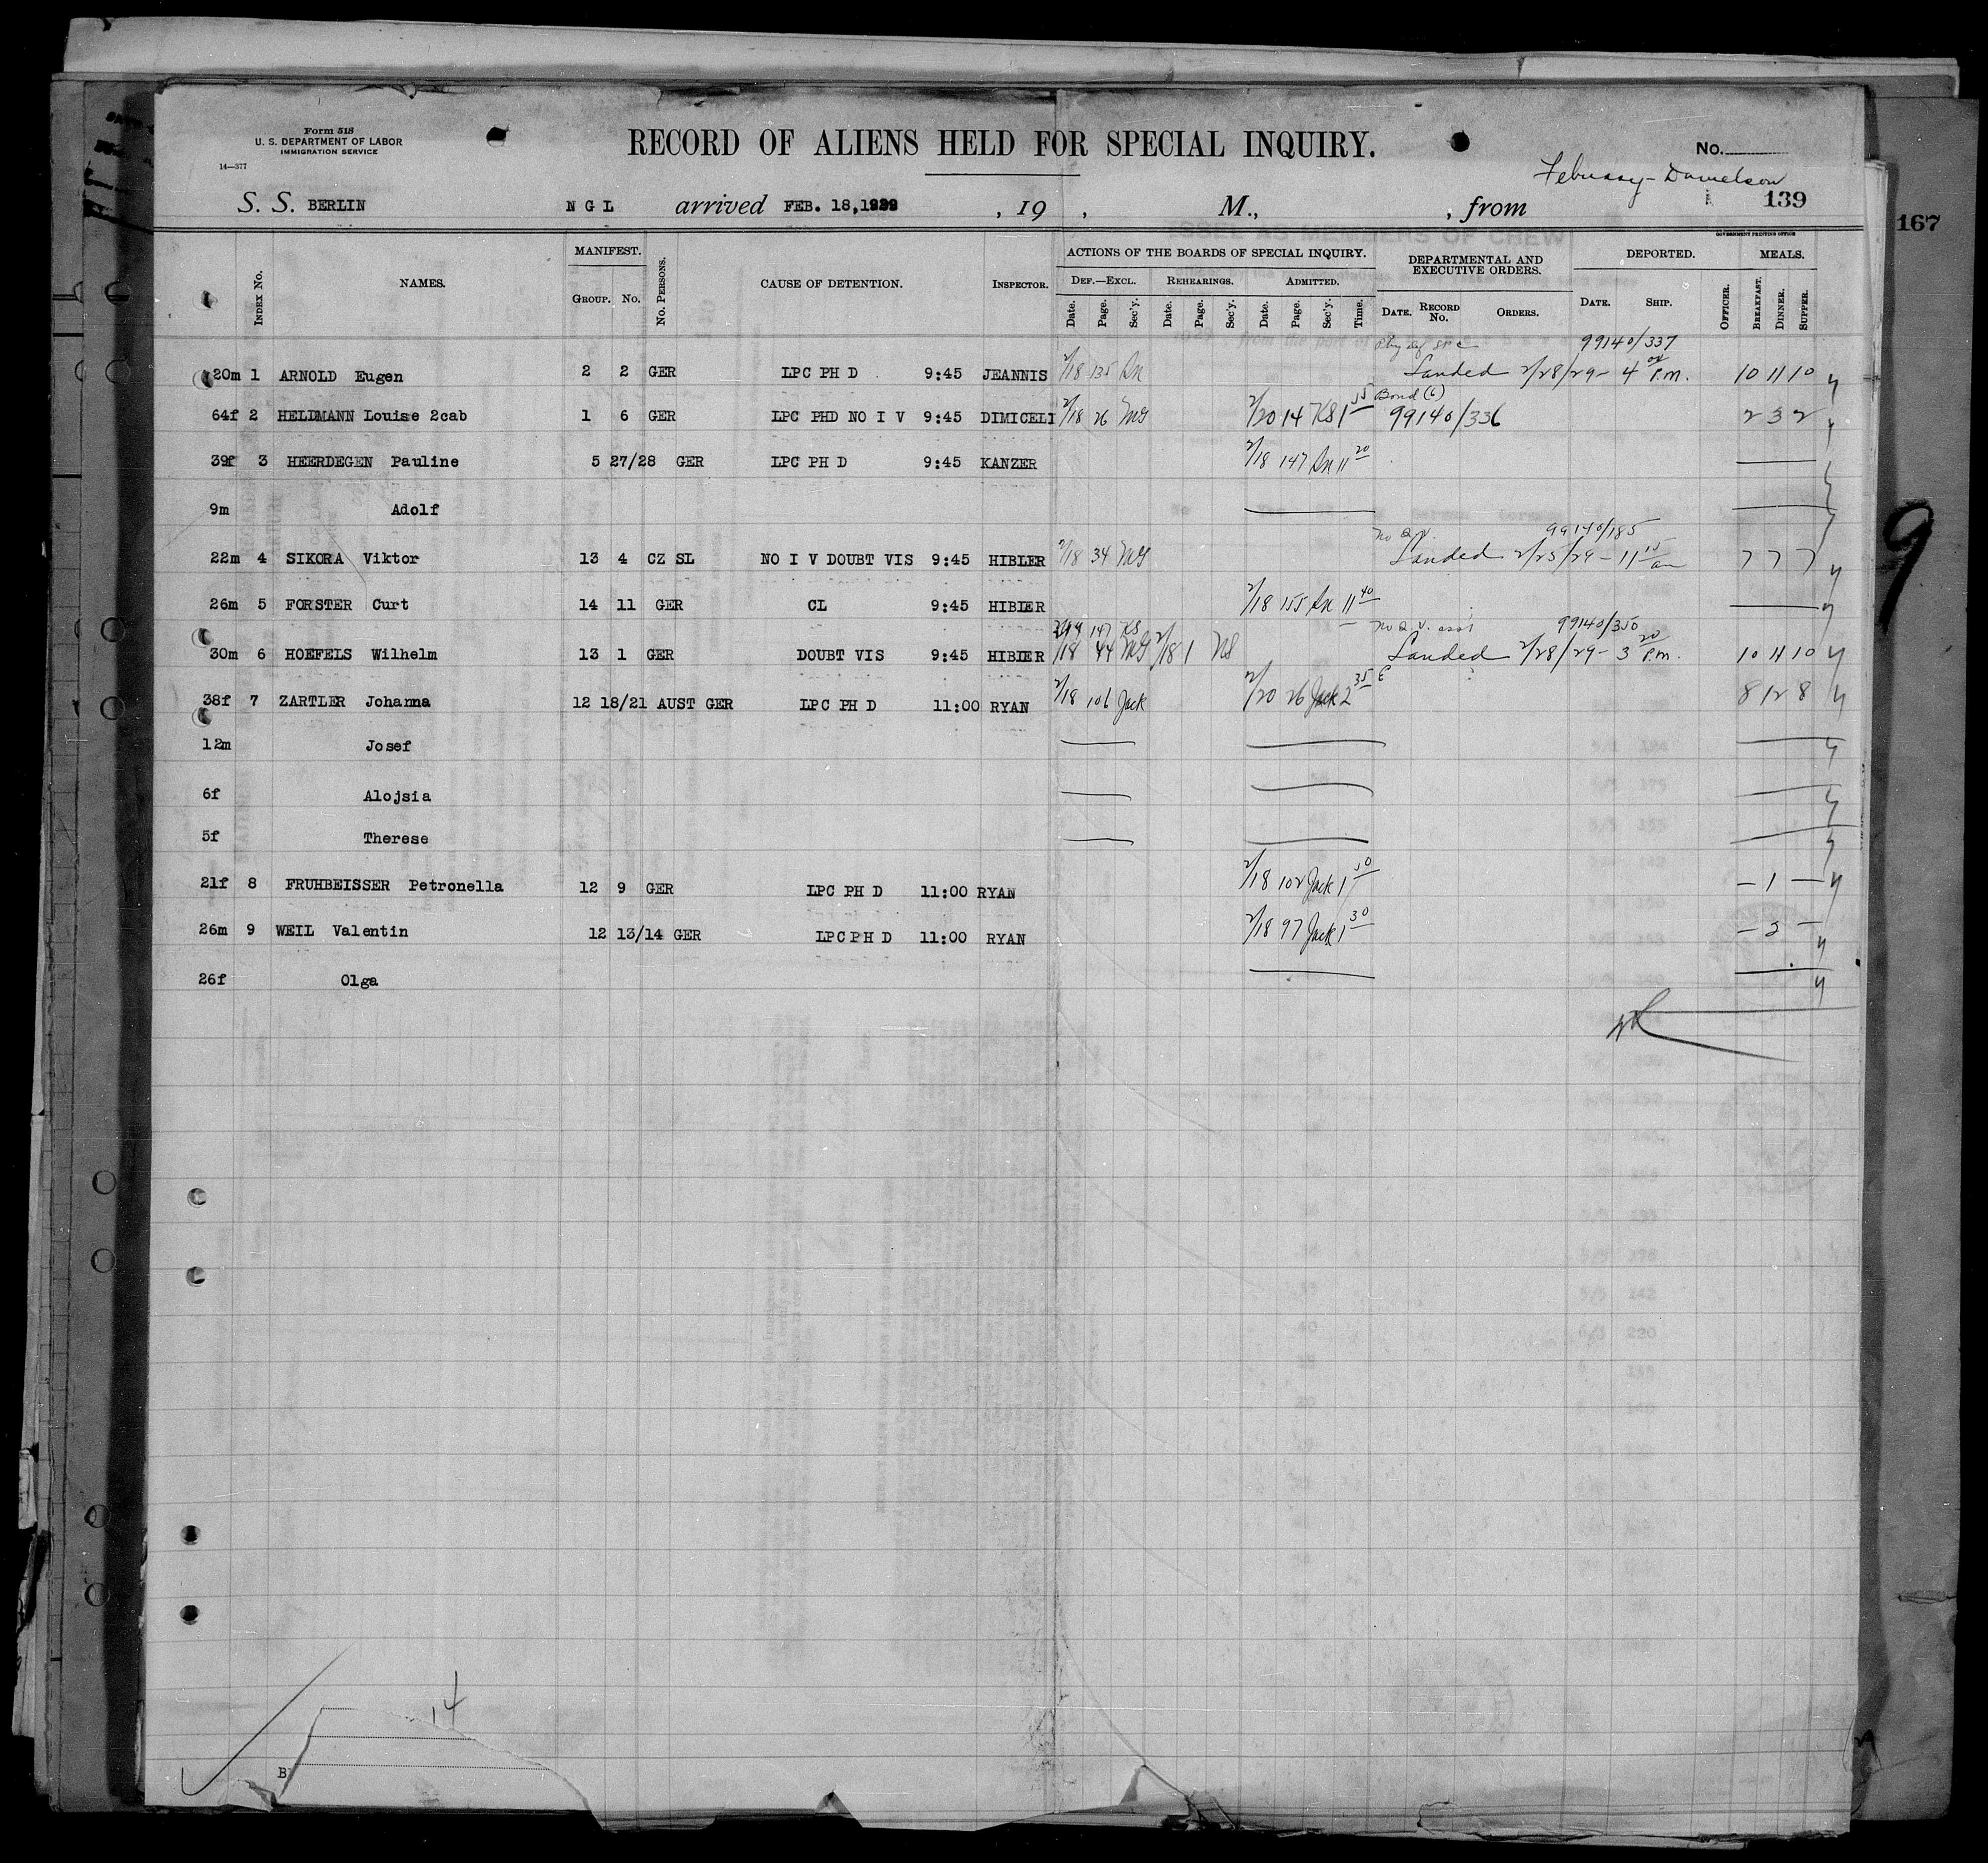 Form 518
U. S. DEPARTMENT OF LABOR
IMMIGRATION SERVICE
14—377
RECORD OF ALIENS HELD FOR SPECIAL INQUIRY.
No.
February - Danielson
S. S. BERLIN N G L arrived FEB. 18, 1929 , 19 , M., , from 139
167
GOVERNMENT PRINTING OFFICE
INDEX No. NAMES. MANIFEST. GROUP. No. No. PERSONS. CAUSE OF DETENTION. INSPECTOR. ACTIONS OF THE BOARDS OF SPECIAL INQUIRY. DEPARTMENTAL AND EXECUTIVE ORDERS. DEPORTED. MEALS.
DEF.—EXCL. REHEARINGS. ADMITTED.
Date. Page. Sec'y. Date. Page. Sec'y. Date. Page. Sec'y. Time. DATE. RECORD No. ORDERS. DATE. SHIP. OFFICER. BREAKFAST. DINNER. SUPPER.
99140/337
20m 1 ARNOLD Eugen 2 2 GER LPC PH D 9:45 JEANNIS 2/18 135 Landed 2/28/29 - 4 P.m. 10 11 10
Bond
64f 2 HELDMANN Louise 2cab 1 6 GER LPC PHD NO I V 9:45 DIMICELI 2/18 26 MG 2/20 14 KS 1 55 99140/336 2 3 2
39f 3 HEERDEGEN Pauline 5 27/28 GER LPC PH D 9:45 KANZER 2/18 147 11 20
9m Adolf
99140/185
22m 4 SIKORA Viktor 13 4 CZ SL NO I V DOUBT VIS 9:45 HIBLER 2/18 34 MG Landed 2/25/29 - 11 15 am 7 7 7
26m 5 FORSTER Curt 14 11 GER CL 9:45 HIBIER 2/18 155 11 40
2/19 147 KS 99140/350
30m 6 HOEFELS Wilhelm 13 1 GER DOUBT VIS 9:45 HIBIER 2/18 44 MG 2/18 1 Landed 2/28/29 - 3 20 P.m. 10 11 10
38f 7 ZARTLER Johanna 12 18/21 AUST GER LPC PH D 11:00 RYAN 2/18 106 Jack 2/20 26 Jack 2 35 8 12 8
12m Josef
6f Alojsia
5f Therese
21f 8 FRUHBEISSER Petronella 12 9 GER LPC PH D 11:00 RYAN 2/18 102 Jack 1 50 — 1 —
26m 9 WEIL Valentin 12 13/14 GER LPC PH D 11:00 RYAN 2/18 97 Jack 1 30 — 2 —
26f Olga
14
9